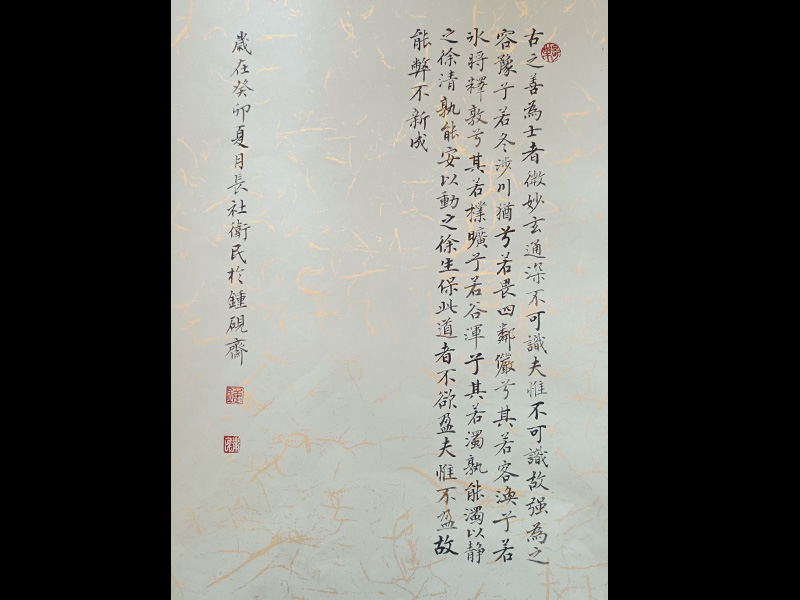 古之善為士者微妙玄通深不可識夫惟不可識故强為之
容豫兮若冬涉川猶兮若畏四鄰儼兮其若容渙兮若
冰將釋敦兮其若樸曠兮若谷渾兮其若濁孰能濁以静
之徐清孰能安以動之徐生保此道者不欲盈夫惟不盈故
能弊不新成
歲在癸卯夏月長社衛民於鍾硯齋